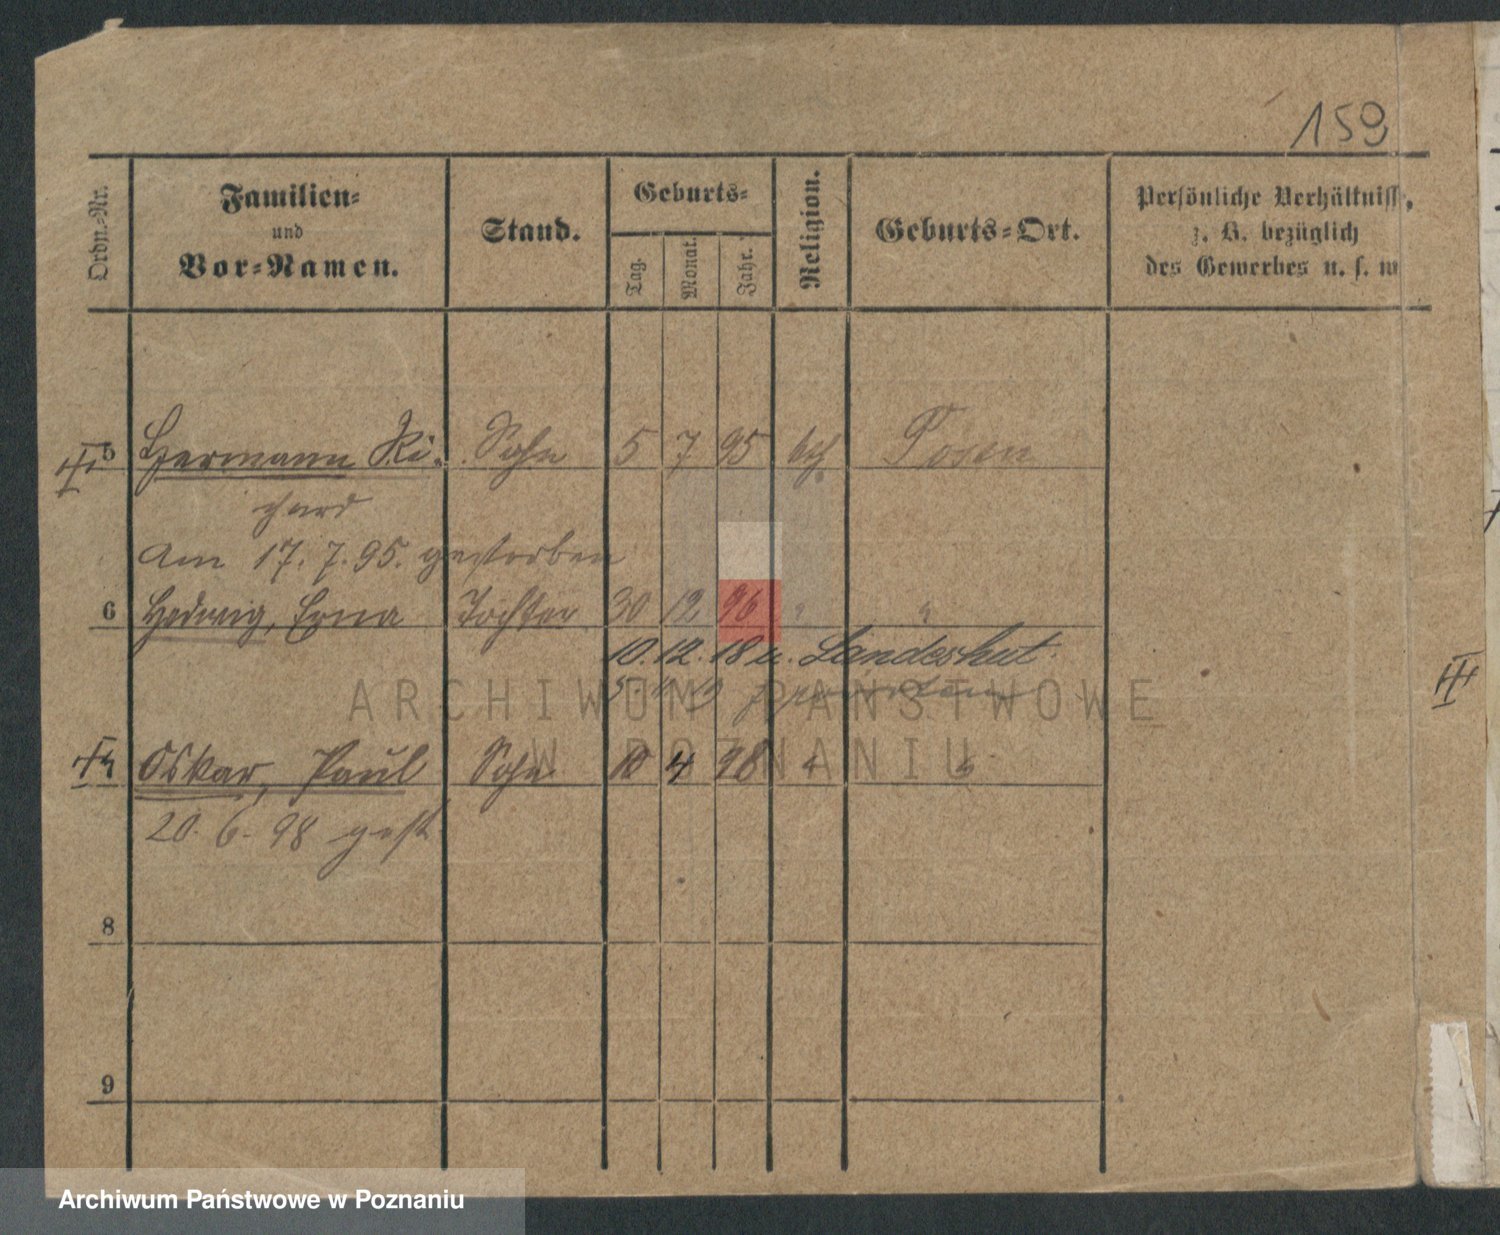 159
Ordn.-Nr.
Familien-
und
Vor-Namen.
Stand.
Geburts-
Tag.
Monat.
Jahr.
Religion.
Geburts-Ort.
Persönliche Verhältniss,
z. B. bezüglich
des Gewerbes u. s. w
5 Hermann Ri- Sohn 5 7 95 Posen
chard
am 17.7.95. gestorben
6 Hedwig, Erna Tochter 30 12 96 " "
10.12.18 n. Landeshut.
Oskar, Paul Sohn 10 4 98 " "
20.6.98 gest.
8
9
III
ARCHIWUM PAŃSTWOWE
W POZNANIU
Archiwum Państwowe w Poznaniu